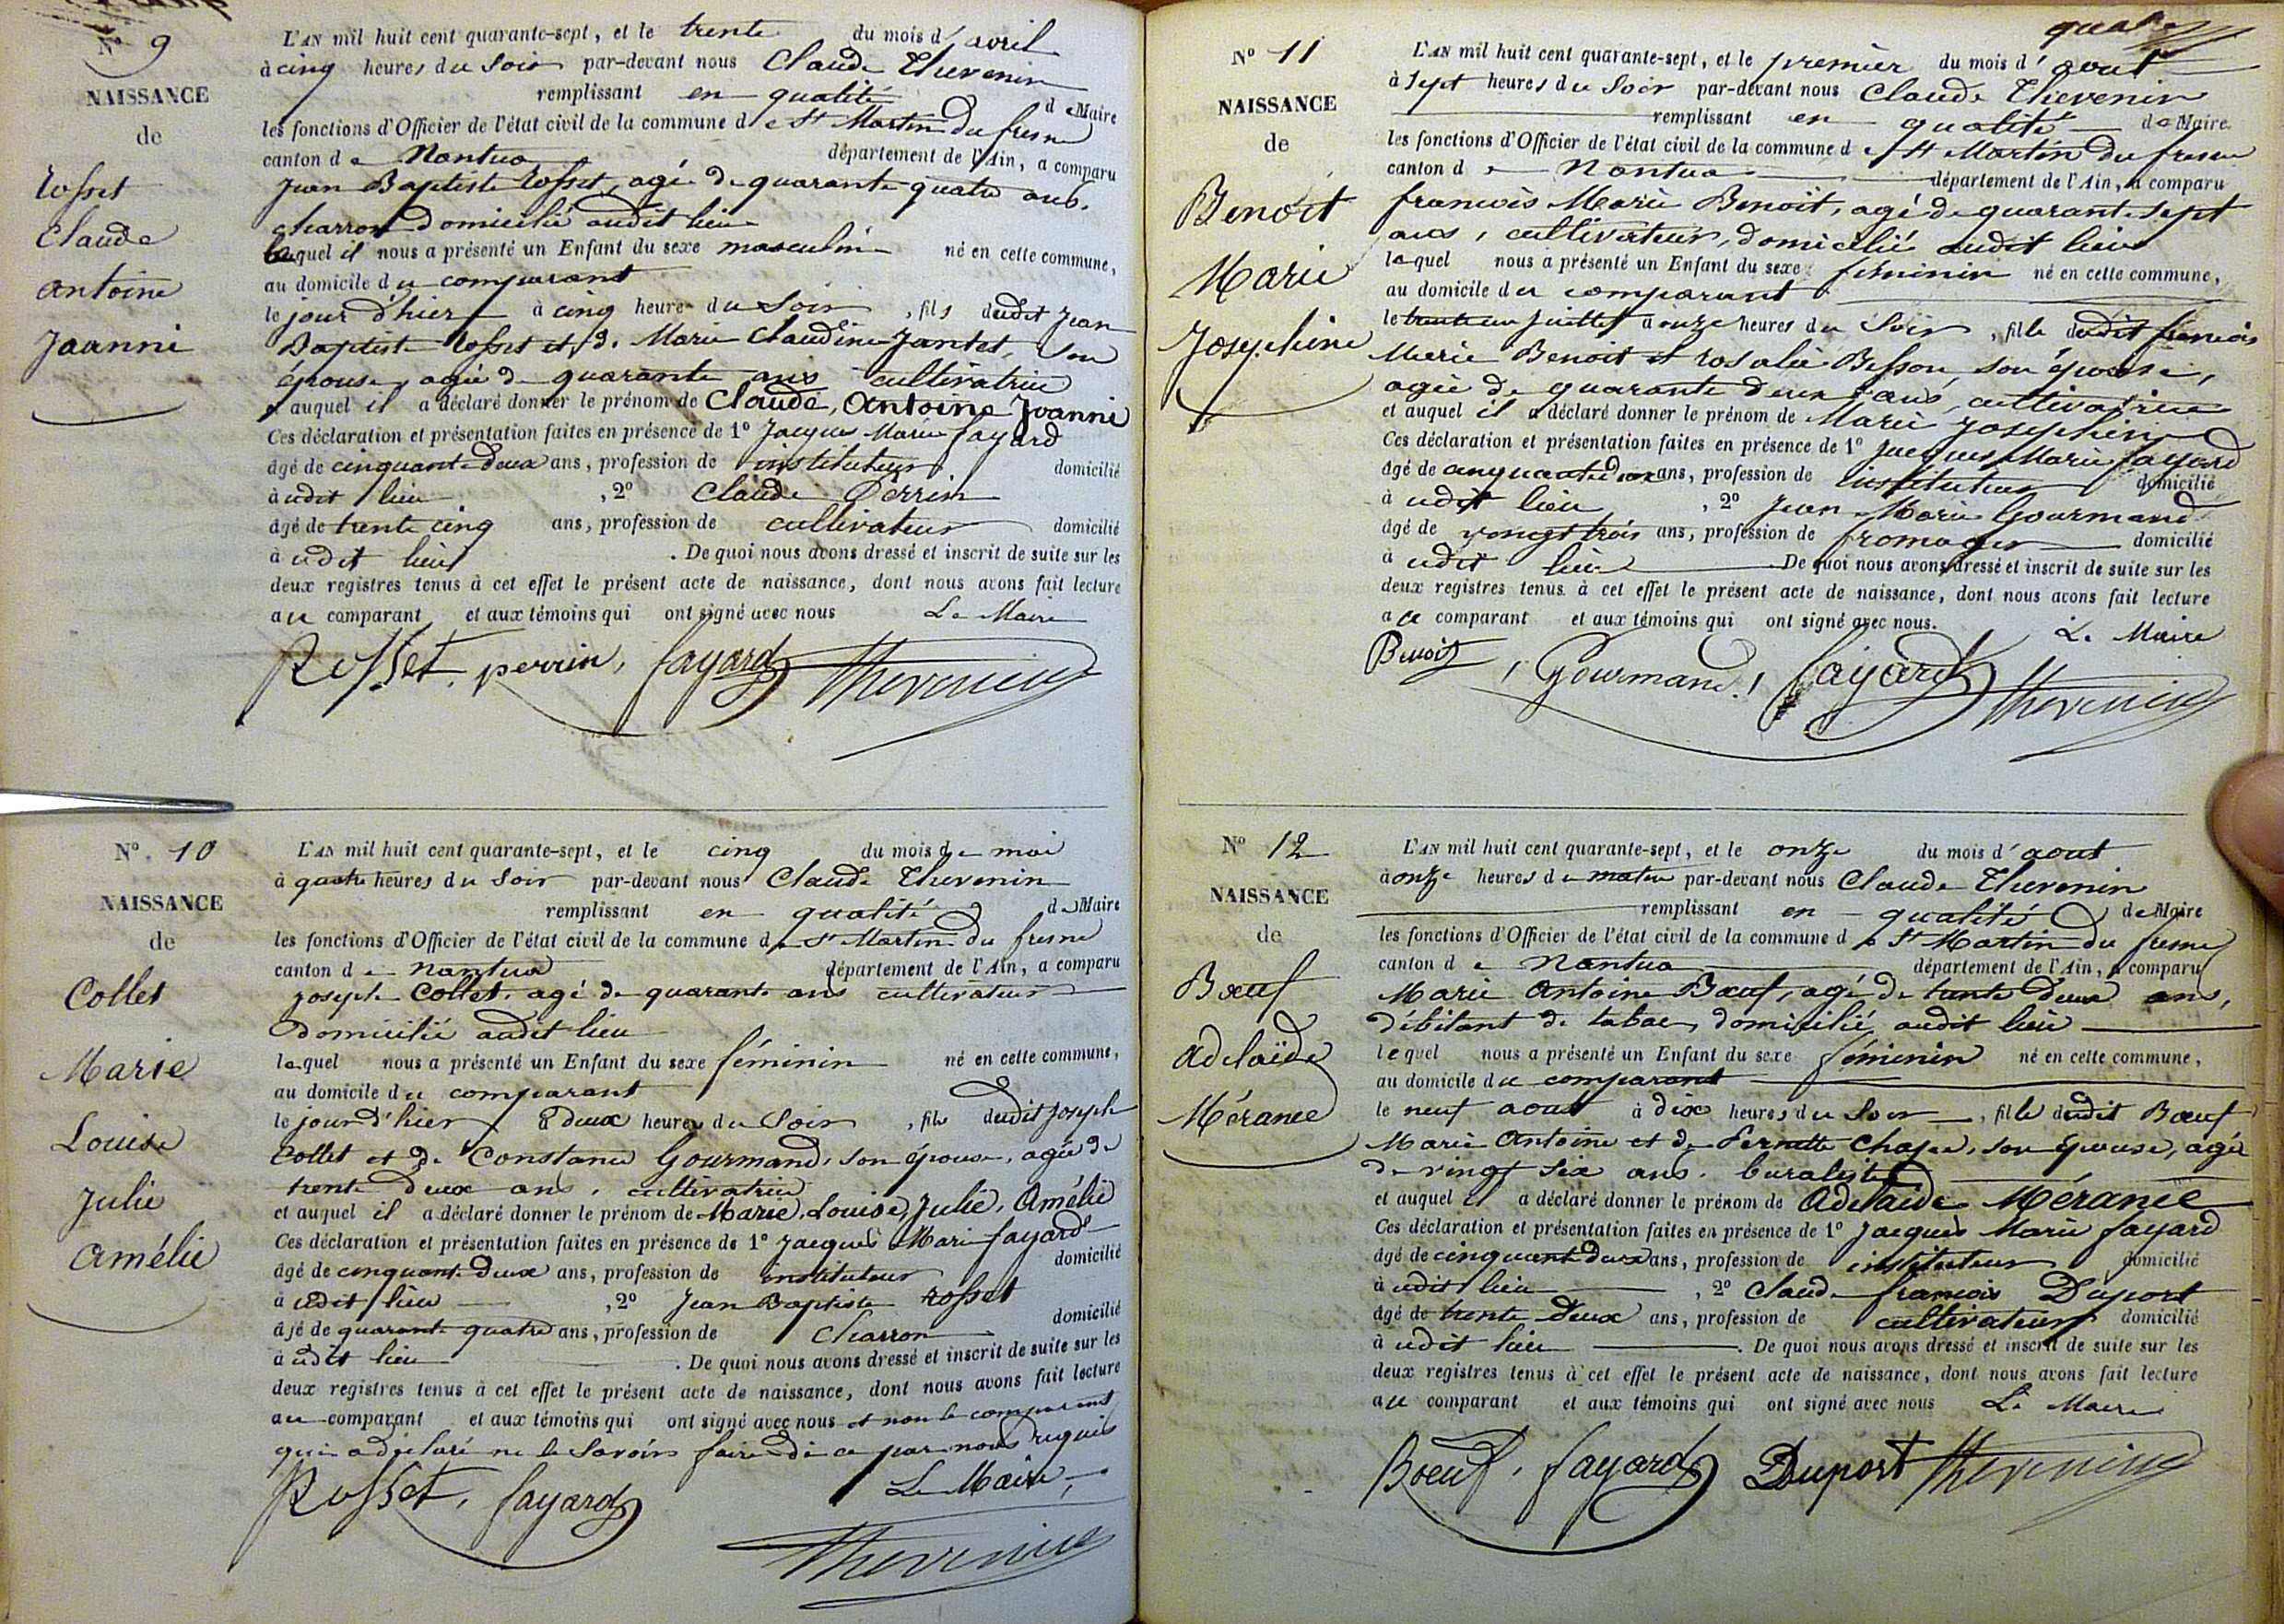 N° 9
NAISSANCE
de
Rosset
Claude
antoine
Joanni
L'AN mil huit cent quarante-sept, et le trente du mois d' avril
à cinq heures du Soir par-devant nous Claude Thevenin
remplissant en qualité de Maire
les fonctions d'Officier de l'état civil de la commune de St Martin du fresne
canton de Nantua département de l'Ain, a comparu
Jean Baptiste Rosset, agé de quarante quatre ans.
charron domicilié audit lieu
lequel il nous a présenté un Enfant du sexe masculin né en cette commune,
au domicile du comparant
le jour d'hier à cinq heure du Soir, fils dudit Jean
Baptiste Rosset et de Marie Claudine Jantet, son
épouse, agée de quarante ans cultivatrice
et auquel il a déclaré donner le prénom de Claude, Antoine Joanni
Ces déclaration et présentation faites en présence de 1° Jacques Marie fayard
âgé de cinquante deux ans, profession de instituteur, domicilié
à udit lieu, 2° Claude Perrin
âgé de trente cinq ans, profession de cultivateur domicilié
à udit lieu. De quoi nous avons dressé et inscrit de suite sur les
deux registres tenus à cet effet le présent acte de naissance, dont nous avons fait lecture
au comparant et aux témoins qui ont signé avec nous Le Maire
Rosset, perrin, fayard Thevenin
N°. 10
NAISSANCE
de
Collet
Marie
Louise
Julie
Amélie
L'AN mil huit cent quarante-sept, et le cinq du mois de mai
à quatre heures du Soir par-devant nous Claude Thevenin
remplissant en qualité de Maire
les fonctions d'Officier de l'état civil de la commune de St Martin du fresne
canton de nantua département de l'Ain, a comparu
joseph Collet, agé de quarante ans cultivateur
domicilié audit lieu
lequel nous a présenté un Enfant du sexe féminin né en cette commune,
au domicile du comparant
le jour d'hier à deux heures du Soir, fille dudit Joseph
Collet et de Constance Gourmand, son épouse, agée de
trente deux ans, cultivatrice
et auquel il a déclaré donner le prénom de Marie, Louise, Julie, Amélie
Ces déclaration et présentation faites en présence de 1° Jacques Marie fayard
âgé de cinquante deux ans, profession de instituteur domicilié
à udit lieu, 2° Jean Baptiste Rosset
âgé de quarante quatre ans, profession de Charron domicilié
à udit lieu. De quoi nous avons dressé et inscrit de suite sur les
deux registres tenus à cet effet le présent acte de naissance, dont nous avons fait lecture
au comparant et aux témoins qui ont signé avec nous et non le comparant
qui a déclaré ne le Savoir faire de ce par nous requis
Le Maire,
Rosset, fayard
Thevenin
N° 11
NAISSANCE
de
Benoit
Marie
Josephine
L'AN mil huit cent quarante-sept, et le premier du mois d' aout
à sept heures du Soir par-devant nous Claude Thevenin
remplissant en qualité de Maire
les fonctions d'Officier de l'état civil de la commune de St Martin du fresne
canton de Nantua département de l'Ain, a comparu
francois Marie Benoit, agé de quarante sept
ans, cultivateur, domicilié audit lieu
lequel nous a présenté un Enfant du sexe féminin né en cette commune,
au domicile du comparant
le trente un juillet à onze heures du Soir, fille dudit francois
Marie Benoit et rosalie Besson son épouse,
agée de quarante deux ans, cultivatrice
et auquel il a déclaré donner le prénom de Marie Josephine
Ces déclaration et présentation faites en présence de 1° Jacques Marie fayard
âgé de cinquante deux ans, profession de instituteur domicilié
à udit lieu, 2° Jean Marie Gourmand
âgé de vingt trois ans, profession de fromager domicilié
à udit lieu De quoi nous avons dressé et inscrit de suite sur les
deux registres tenus à cet effet le présent acte de naissance, dont nous avons fait lecture
au comparant et aux témoins qui ont signé avec nous. Le Maire
Benoit, Gourmand, fayard Thevenin
N° 12
NAISSANCE
de
Bœuf
Adelaïde
Méranee
L'AN mil huit cent quarante-sept, et le onze du mois d' aout
à onze heures de matin par-devant nous Claude Thevenin
remplissant en qualité de Maire
les fonctions d'Officier de l'état civil de la commune de St Martin du fresne
canton de Nantua département de l'Ain, a comparu
Marie Antoine Bœuf, agé de trente deux ans,
débitant de tabac, domicilié audit lieu
lequel nous a présenté un Enfant du sexe féminin né en cette commune,
au domicile du comparant
le neuf aout à dix heures du Soir, fille dudit Bœuf
Marie Antoine et de Pernette son épouse, agée
de vingt six ans. buraliste
et auquel il a déclaré donner le prénom de Adelaide Méranee
Ces déclaration et présentation faites en présence de 1° Jacques Marie fayard
âgé de cinquante deux ans, profession de instituteur domicilié
à udit lieu, 2° Claude francois Duport
âgé de trente deux ans, profession de cultivateur domicilié
à udit lieu. De quoi nous avons dressé et inscrit de suite sur les
deux registres tenus à cet effet le présent acte de naissance, dont nous avons fait lecture
au comparant et aux témoins qui ont signé avec nous Le Maire
Boeuf. fayard Duport Thevenin